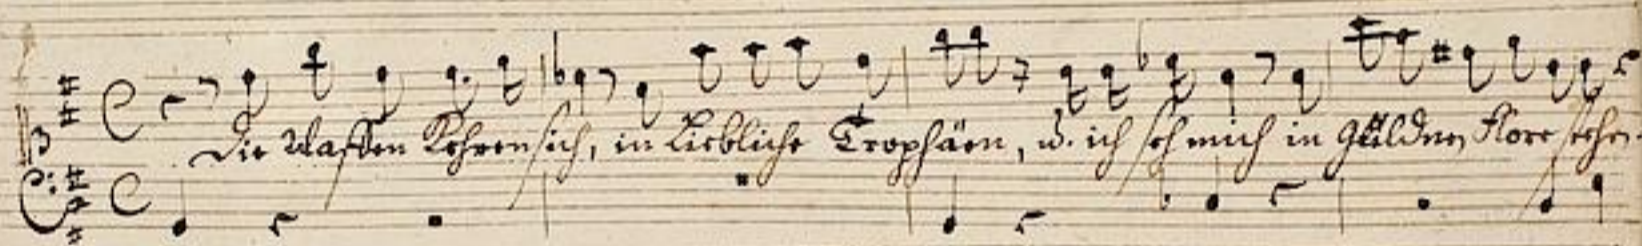 Die Waffen kehren sich, in Liebliche Trophäen, u. ich seh mich in Güldnen Flore stehen.